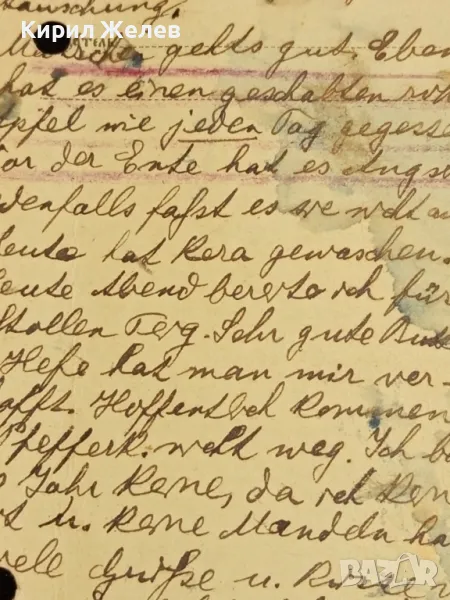 Кирил Желев
täuschung.
gehts gut. Eben
hat es einen geschabten roh
Apfel wie jeden Tag gegesse
Vor der Ente hat es Angst
denfalls faßt es sie nicht an
Heute hat Kera gewaschen.
Heute Abend bereite ich für
Stollen Teig. Sehr gute Butt
Hefe hat man mir ver-
afft. Hoffentlich kommen
Pfefferk. nicht weg. Ich b
s Jahr keine, da ich kein
t u. keine Mandeln ha
iele Grüße u. Küsse
BAZAR